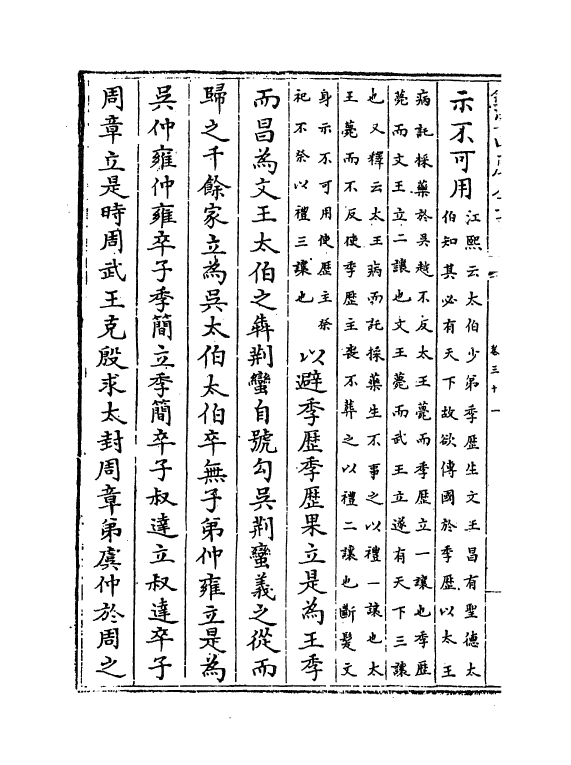 卷三十一
示不可用
江熙云太伯少弟季歷生文王昌有聖德太
伯知其必有天下故欲傳國於季歷以太王
病託採藥於吳越不反太王薨而季歷立一讓也季歷
薨而文王立二讓也文王薨而武王立遂有天下三讓
也又釋云太王病而託採藥生不事之以禮一讓也太
王薨而不反使季歷主喪不葬之以禮二讓也斷髮文
身示不可用使歷主祭
祀不祭以禮三讓也
以避季歷季歷果立是為王季
而昌為文王太伯之犇荊蠻自號勾吳荊蠻義之從而
歸之千餘家立為吳太伯太伯卒無子弟仲雍立是為
吳仲雍仲雍卒子季簡立季簡卒子叔達立叔達卒子
周章立是時周武王克殷求太封周章弟虞仲於周之